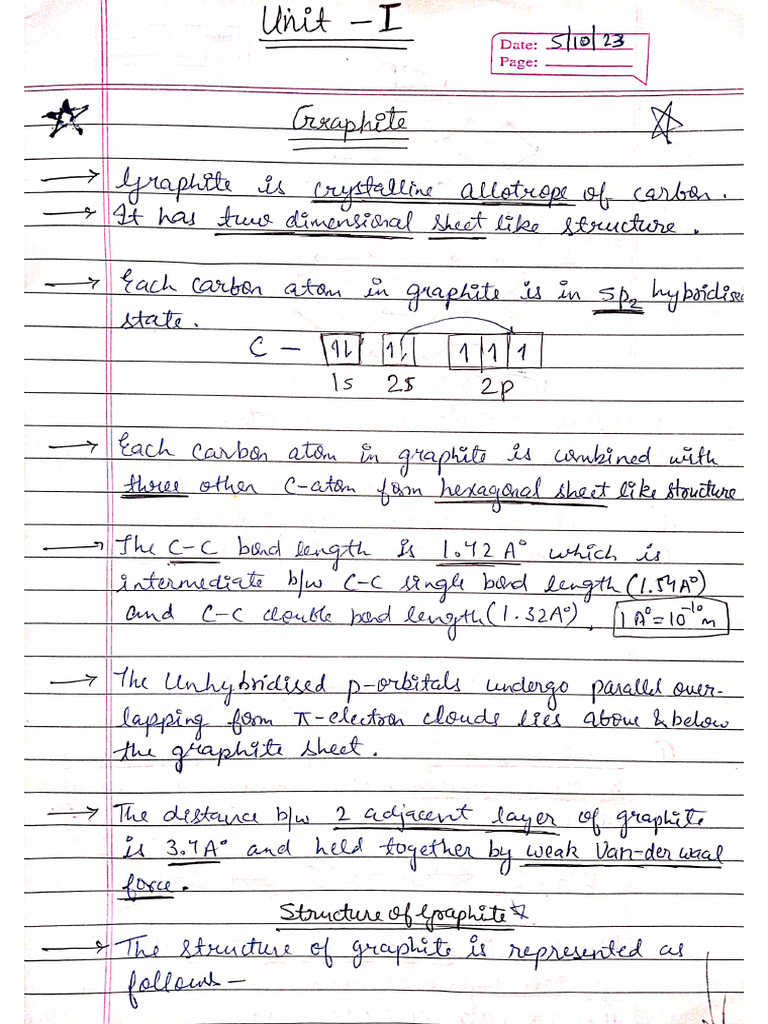 Unit - I
Date: 5/10/23
Page:
Graphite
→ Graphite is crystalline allotrope of carbon.
→ It has two dimensional sheet like structure.
→ Each carbon atom in graphite is in sp2 hybridised
state.
C - 1⇂ 1⇂ 1 1 1
1s 2s 2p
→ Each carbon atom in graphite is combined with
three other C-atom form hexagonal sheet like structure
→ The C-C bond length is 1.42 A° which is
intermediate b/w C-C single bond length (1.54A°)
and C-C double bond length (1.32A°). 1 A° = 10⁻¹⁰ m
→ The Unhybridised p-orbitals undergo parallel over-
lapping form π-electron clouds lies above & below
the graphite sheet.
→ The distance b/w 2 adjacent layer of graphite
is 3.4A° and held together by weak Van-der waal
force.
Structure of Graphite
→ The structure of graphite is represented as
follows -